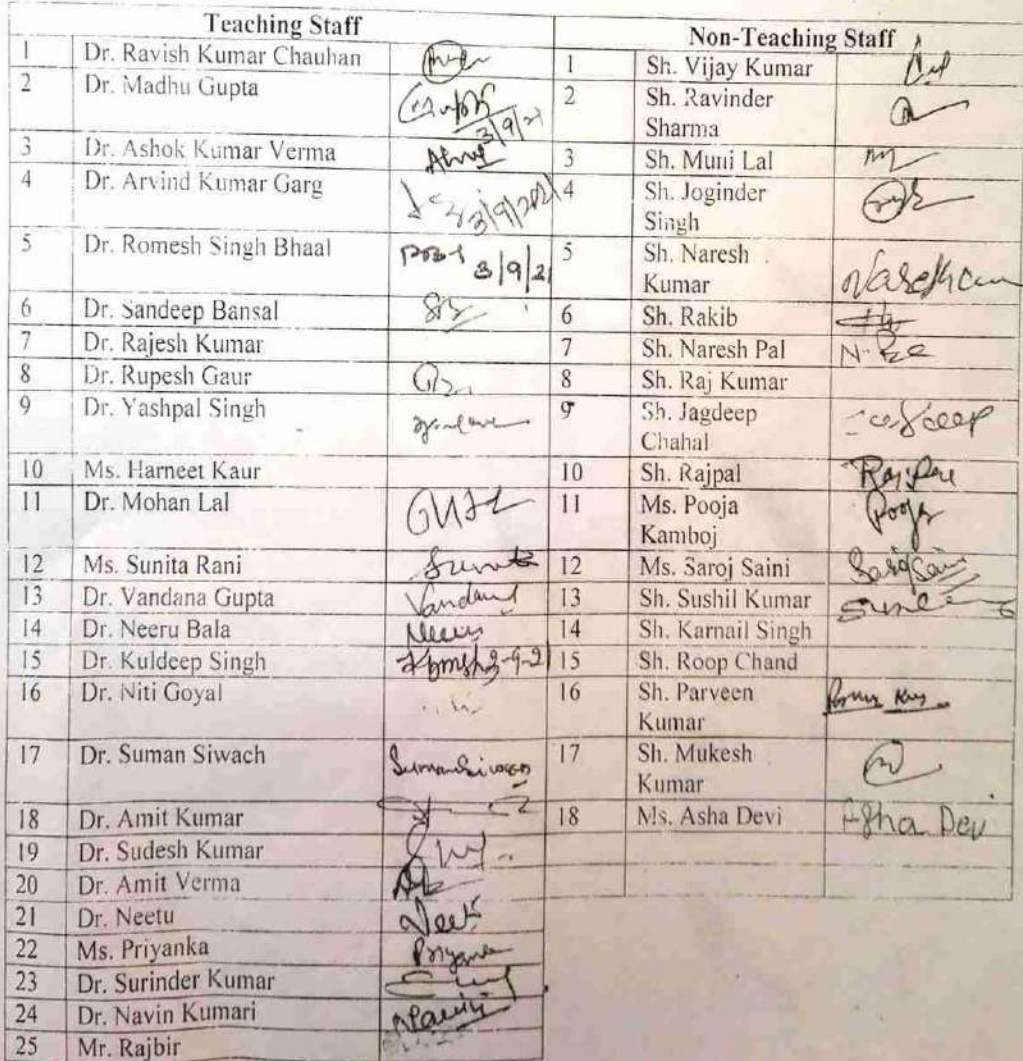 Teaching Staff
1 Dr. Ravish Kumar Chauhan
2 Dr. Madhu Gupta 3/9/21
3 Dr. Ashok Kumar Verma
4 Dr. Arvind Kumar Garg 3/9/2021
5 Dr. Romesh Singh Bhaal 3/9/21
6 Dr. Sandeep Bansal
7 Dr. Rajesh Kumar
8 Dr. Rupesh Gaur
9 Dr. Yashpal Singh
10 Ms. Harneet Kaur
11 Dr. Mohan Lal
12 Ms. Sunita Rani Sunita
13 Dr. Vandana Gupta Vandana
14 Dr. Neeru Bala
15 Dr. Kuldeep Singh 3-9-21
16 Dr. Niti Goyal
17 Dr. Suman Siwach Suman Siwach
18 Dr. Amit Kumar
19 Dr. Sudesh Kumar
20 Dr. Amit Verma
21 Dr. Neetu
22 Ms. Priyanka Priyanka
23 Dr. Surinder Kumar
24 Dr. Navin Kumari
25 Mr. Rajbir
Non-Teaching Staff
1 Sh. Vijay Kumar
2 Sh. Ravinder
Sharma
3 Sh. Muni Lal
4 Sh. Joginder
Singh
5 Sh. Naresh
Kumar
6 Sh. Rakib
7 Sh. Naresh Pal
8 Sh. Raj Kumar
9 Sh. Jagdeep
Chahal
10 Sh. Rajpal Rajpal
11 Ms. Pooja Pooja
Kamboj
12 Ms. Saroj Saini Saroj Saini
13 Sh. Sushil Kumar
14 Sh. Karnail Singh
15 Sh. Roop Chand
16 Sh. Parveen
Kumar
17 Sh. Mukesh
Kumar
18 Ms. Asha Devi Asha Devi